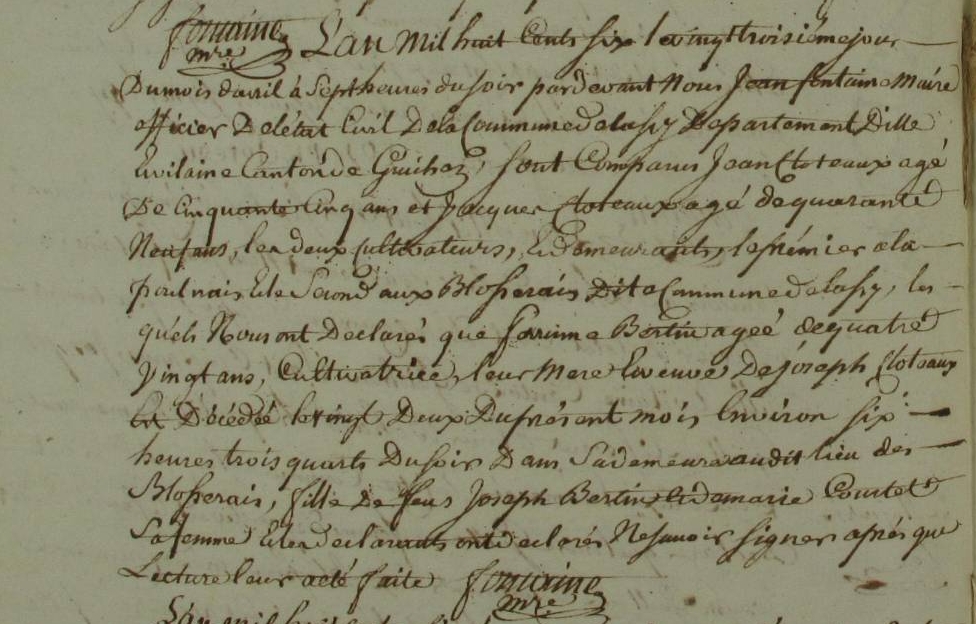 fontaine
mre L'an Mil huit Cents six le vingt troisième jour
Du mois d'avril à Sept heures du soir par devant Nous Jean fontaine Maire
officier De létat Civil De la Commune de lassy Département Dille
Evilaine Canton de Guichen, sont Comparus Jean Cloteaux agé
De Cinquante Cinq ans et Jacques Cloteaux agé de quarante
Neuf ans, les deux Cultivateurs, Et demeurants, le prémier a la
poulnais Et le Second aux Blosserais Dite Commune de lassy, les
quels Nous ont Declarés que Perrinne Bertin ageé de quatre
Vingt ans, Cultivatrice, leur Mere Et veuve De joseph Cloteaux
Est Décédée le vingt Deux Du présent mois Environ six
heures trois quarts Du soir Dans Sa demeure audit lieu des
Blosserais, fille De feus Joseph Bertin Et de marie Courtel
Sa femme Et les declarants ont declarés Ne savoir signer aprés que
Lecture leur a eté faite fontaine
mre
L'an mil huit